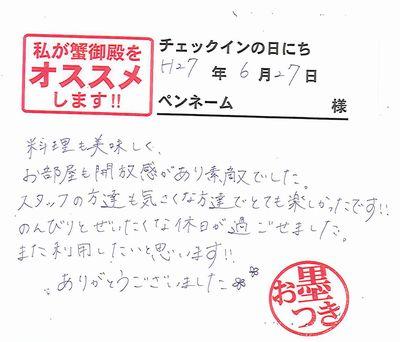 私が蟹御殿を
オススメ
します!!
チェックインの日にち
H27 年 6 月 27 日
ペンネーム 様
料理も美味しく、
お部屋も開放感があり素敵でした。
スタッフの方達も気さくな方達でとても楽しかったです!!
のんびりとぜいたくな休日が過ごせました。
また利用したいと思います!!
ありがとうございました
お墨つき